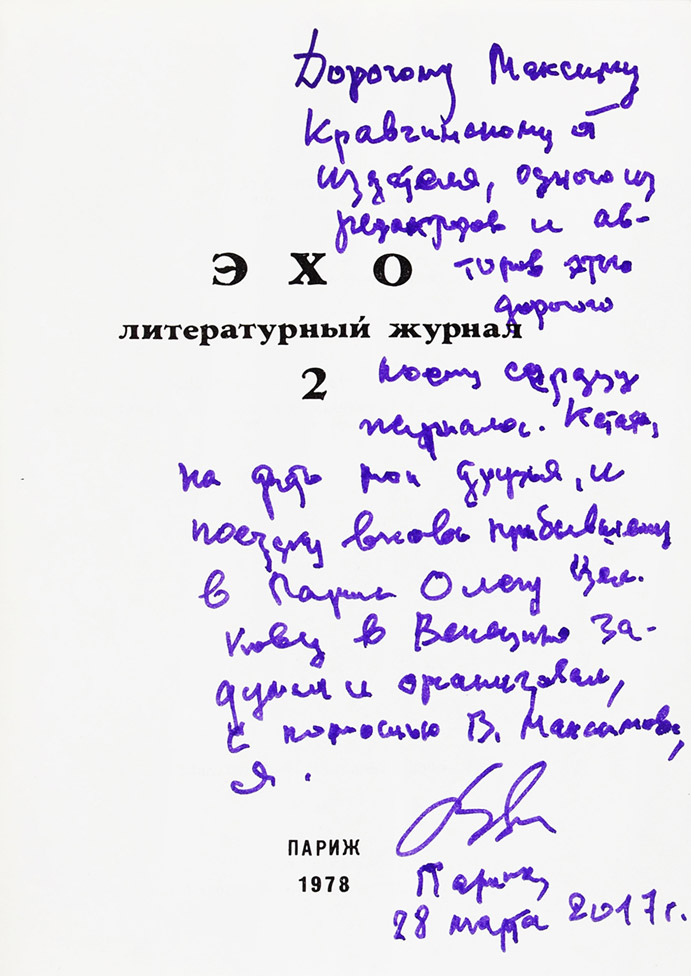 Дорогому Максиму
Кравчинскому от
издателя, одного из
редакторов и ав-
торов этого
дорогого
моему сердцу
журнала. Кстати,
на фото мои друзья, и
поездку вновь прибывшему
в Париж Олегу Цел-
кову в Венецию за-
думал и организовал,
с помощью В. Максимова,
я.
ЭХО
литературный журнал
2
ПАРИЖ
1978
Париж,
28 марта 2017 г.